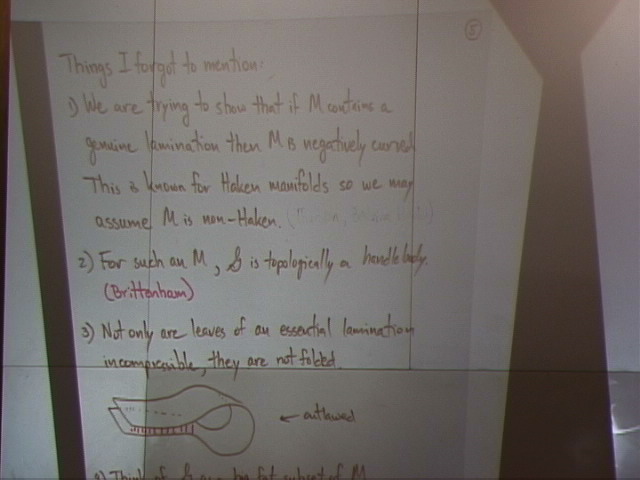 5
Things I forgot to mention:
1) We are trying to show that if M contains a
genuine lamination then M is negatively curved
This is known for Haken manifolds so we may
assume M is non-Haken.
2) For such an M, S is topologically a handlebody.
(Brittenham)
3) Not only are leaves of an essential lamination
incompressible, they are not folded.
← outlawed
Think of S as a big fat subset of M